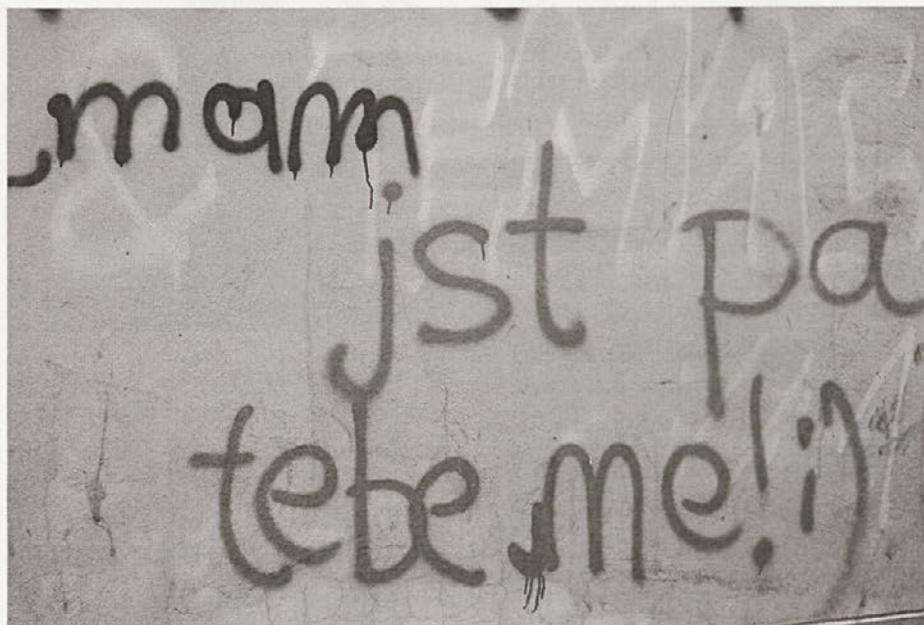 mam
jst pa
tebe me!;)